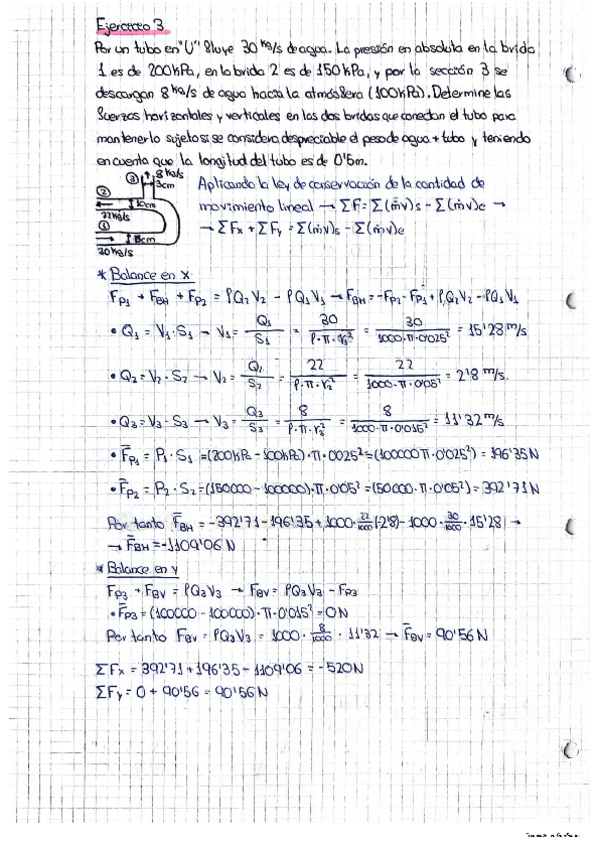 Ejercicio 3
Por un tubo en "U" fluye 30 kg/s de agua. La presión en absoluta en la brida
1 es de 200kPa, en la brida 2 es de 150kPa, y por la sección 3 se
descargan 8 kg/s de agua hacia la atmósfera (100kPa). Determine las
fuerzas horizontales y verticales en las dos bridas que conectan el tubo para
mantenerlo sujeto si se considera despreciable el peso de agua + tubo y teniendo
en cuenta que la longitud del tubo es de 0'5m.
③ 8 kg/s
3cm
② 10cm
22kg/s
①
5cm
30 kg/s
Aplicando la ley de conservación de la cantidad de
movimiento lineal → ΣF = Σ(ṁv)s - Σ(ṁv)e →
→ ΣFx + ΣFy = Σ(ṁv)s - Σ(ṁv)e
* Balance en x
Fp1 + FBH + Fp2 = ρQ2V2 - ρQ1V1 → FBH = -Fp2 - Fp1 + ρQ2V2 - ρQ1V1
• Q1 = V1·S1 → V1 = Q1/S1 = 30/ρ·π·r1² = 30/1000·π·0'025² = 15'28 m/s
• Q2 = V2·S2 → V2 = Q2/S2 = 22/ρ·π·r2² = 22/1000·π·0'05² = 2'8 m/s.
• Q3 = V3·S3 → V3 = Q3/S3 = 8/ρ·π·r3² = 8/1000·π·0'015² = 11'32 m/s
• Fp1 = P1·S1 = (200kPa - 100kPa)·π·0'025² = (100000π·0'025²) = 196'35N
• Fp2 = P2·S2 = (150000 - 100000)·π·0'05² = (50000·π·0'05²) = 392'71N
Por tanto FBH = -392'71 - 196'35 + 1000·22/1000·(-2'8) - 1000·30/1000·15'28 →
→ FBH = -1109'06 N
* Balance en y
Fp3 + FBV = ρQ3V3 → FBV = ρQ3V3 - Fp3
• Fp3 = (100000 - 100000)·π·0'015² = 0N
Por tanto FBV = ρQ3V3 = 1000·8/1000·11'32 → FBV = 90'56N
ΣFx = 392'71 + 196'35 - 1109'06 = -520N
ΣFy = 0 + 90'56 = 90'56N